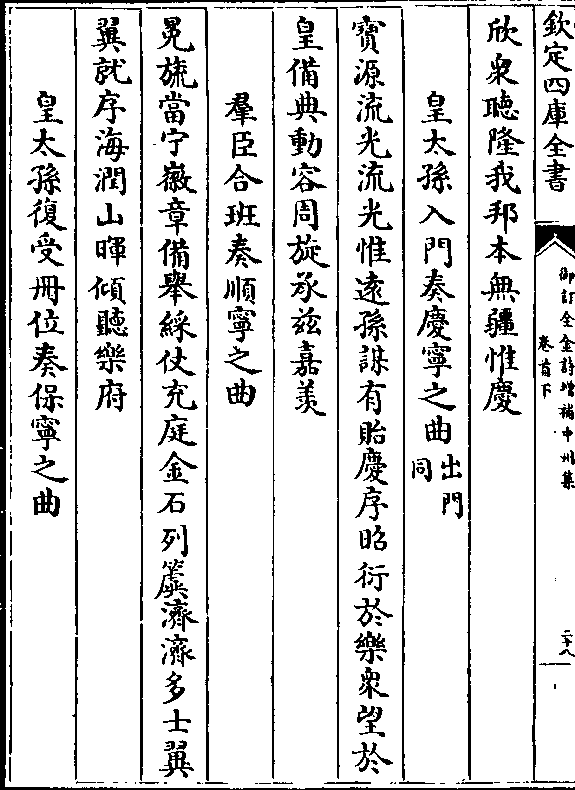 欽定四庫全書
御訂全金詩增補中州集
卷首下
二十八
欣衆聽隆我邦本無疆惟慶
皇太孫入門奏慶寧之曲出門同
寶源流光流光惟遠孫謀有貽慶序昭衍於樂衆望於
皇備典動容周旋承兹嘉羡
羣臣合班奏順寧之曲
冕旒當宁徽章備舉綵仗充庭金石列簴濟濟多士翼
翼就序海潤山暉傾聽樂府
皇太孫復受冊位奏保寧之曲